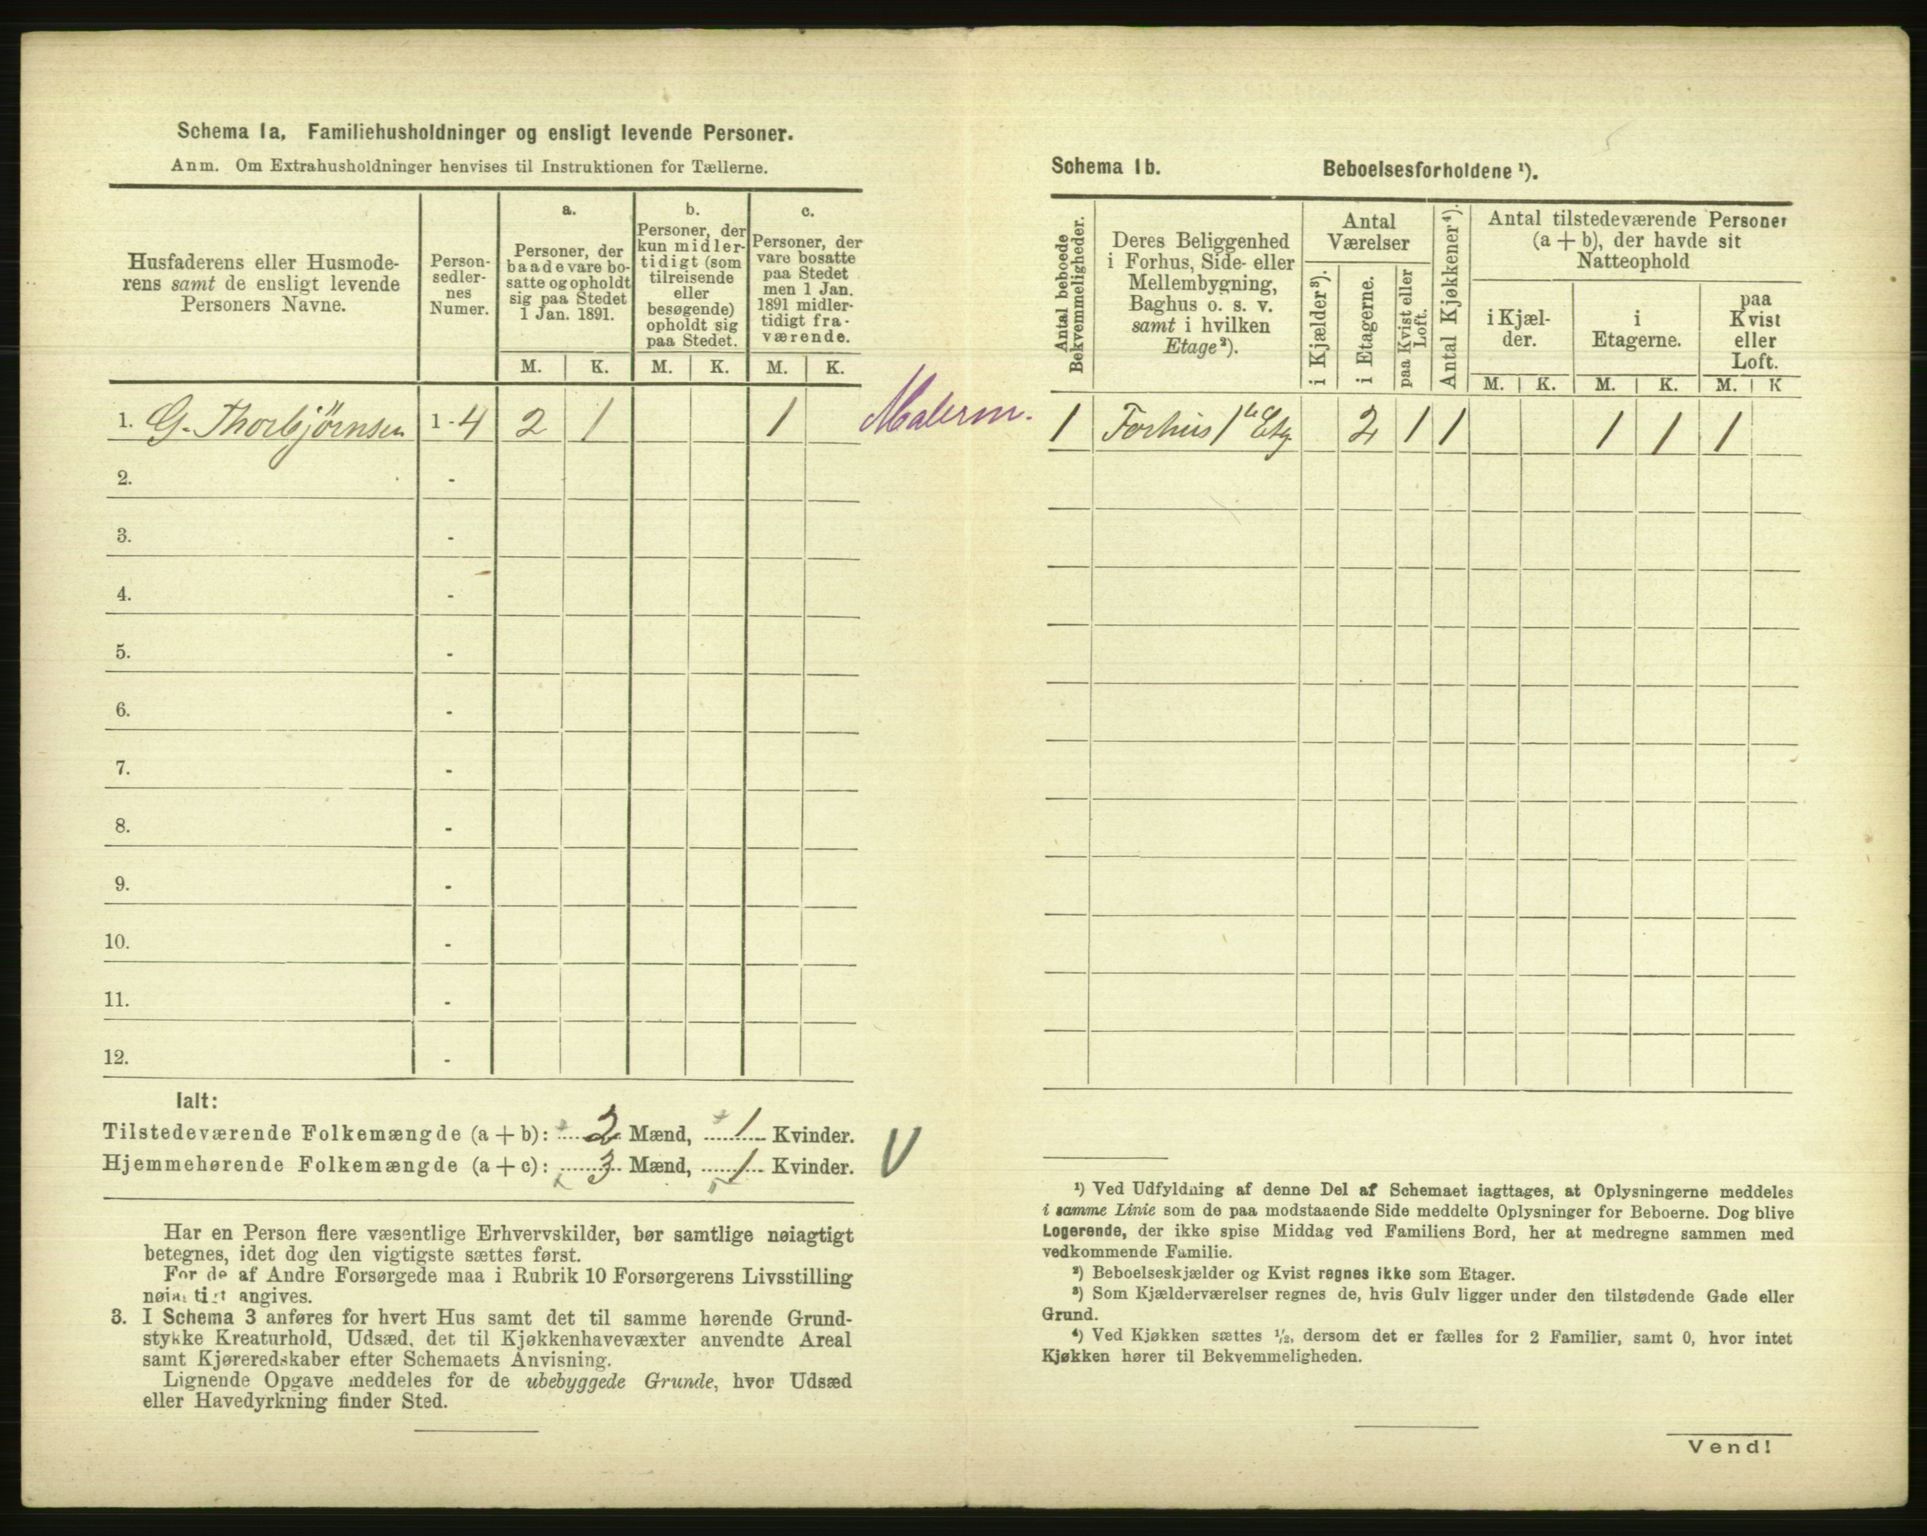 Schema 1a, Familiehusholdninger og ensligt levende Personer.
Anm. Om Extrahusholdninger henvises til Instruktionen for Tællerne.
Husfaderens eller Husmode-
rens samt de ensligt levende
Personers Navne.
Person-
sedler-
nes
Numer.
a.
Personer, der
baade vare bo-
satte og opholdt
sig paa Stedet
1 Jan. 1891.
b.
Personer, der
kun midler-
tidigt (som
tilreisende
eller
besøgende)
opholdt sig
paa Stedet.
c.
Personer, der
vare bosatte
paa Stedet
men 1 Jan.
1891 midler-
tidigt fra-
værende.
M. K. M. K. M. K.
1. G. Thorbjørnsen 1-4 2 1 1 Malerm.
2. -
3. -
4. -
5. -
6. -
7. -
8. -
9. -
10. -
11. -
12. -
Ialt:
Tilstedeværende Folkemængde (a + b): 2 Mænd, 1 Kvinder.
Hjemmehørende Folkemængde (a + c): 3 Mænd, 1 Kvinder. V
Har en Person flere væsentlige Erhvervskilder, bør samtlige nøiagtigt
betegnes, idet dog den vigtigste sættes først.
For de af Andre Forsørgede maa i Rubrik 10 Forsørgerens Livsstilling
nøiagtigt angives.
3. I Schema 3 anføres for hvert Hus samt det til samme hørende Grund-
stykke Kreaturhold, Udsæd, det til Kjøkkenhavevæxter anvendte Areal
samt Kjøreredskaber efter Schemaets Anvisning.
Lignende Opgave meddeles for de ubebyggede Grunde, hvor Udsæd
eller Havedyrkning finder Sted.
5
Schema 1b. Beboelsesforholdene ¹).
Antal beboede
Bekvemmeligheder.
Deres Beliggenhed
i Forhus, Side- eller
Mellembygning,
Baghus o. s. v.
samt i hvilken
Etage²).
Antal
Værelser
i Kjælder³).
i Etagerne.
paa Kvist eller
Loft.
Antal Kjøkkener⁴).
Antal tilstedeværende Personer
(a + b), der havde sit
Natteophold
i Kjæl-
der.
i
Etagerne.
paa
Kvist
eller
Loft.
M. K. M. K. M. K
1 Forhus 1ste Etg 2 1 1 1 1 1
¹) Ved Udfyldning af denne Del af Schemaet iagttages, at Oplysningerne meddeles
i samme Linie som de paa modstaaende Side meddelte Oplysninger for Beboerne. Dog blive
Logerende, der ikke spise Middag ved Familiens Bord, her at medregne sammen med
vedkommende Familie.
²) Beboelseskjælder og Kvist regnes ikke som Etager.
³) Som Kjælderværelser regnes de, hvis Gulv ligger under den tilstødende Gade eller
Grund.
⁴) Ved Kjøkken sættes ½, dersom det er fælles for 2 Familier, samt 0, hvor intet
Kjøkken hører til Bekvemmeligheden.
Vend!